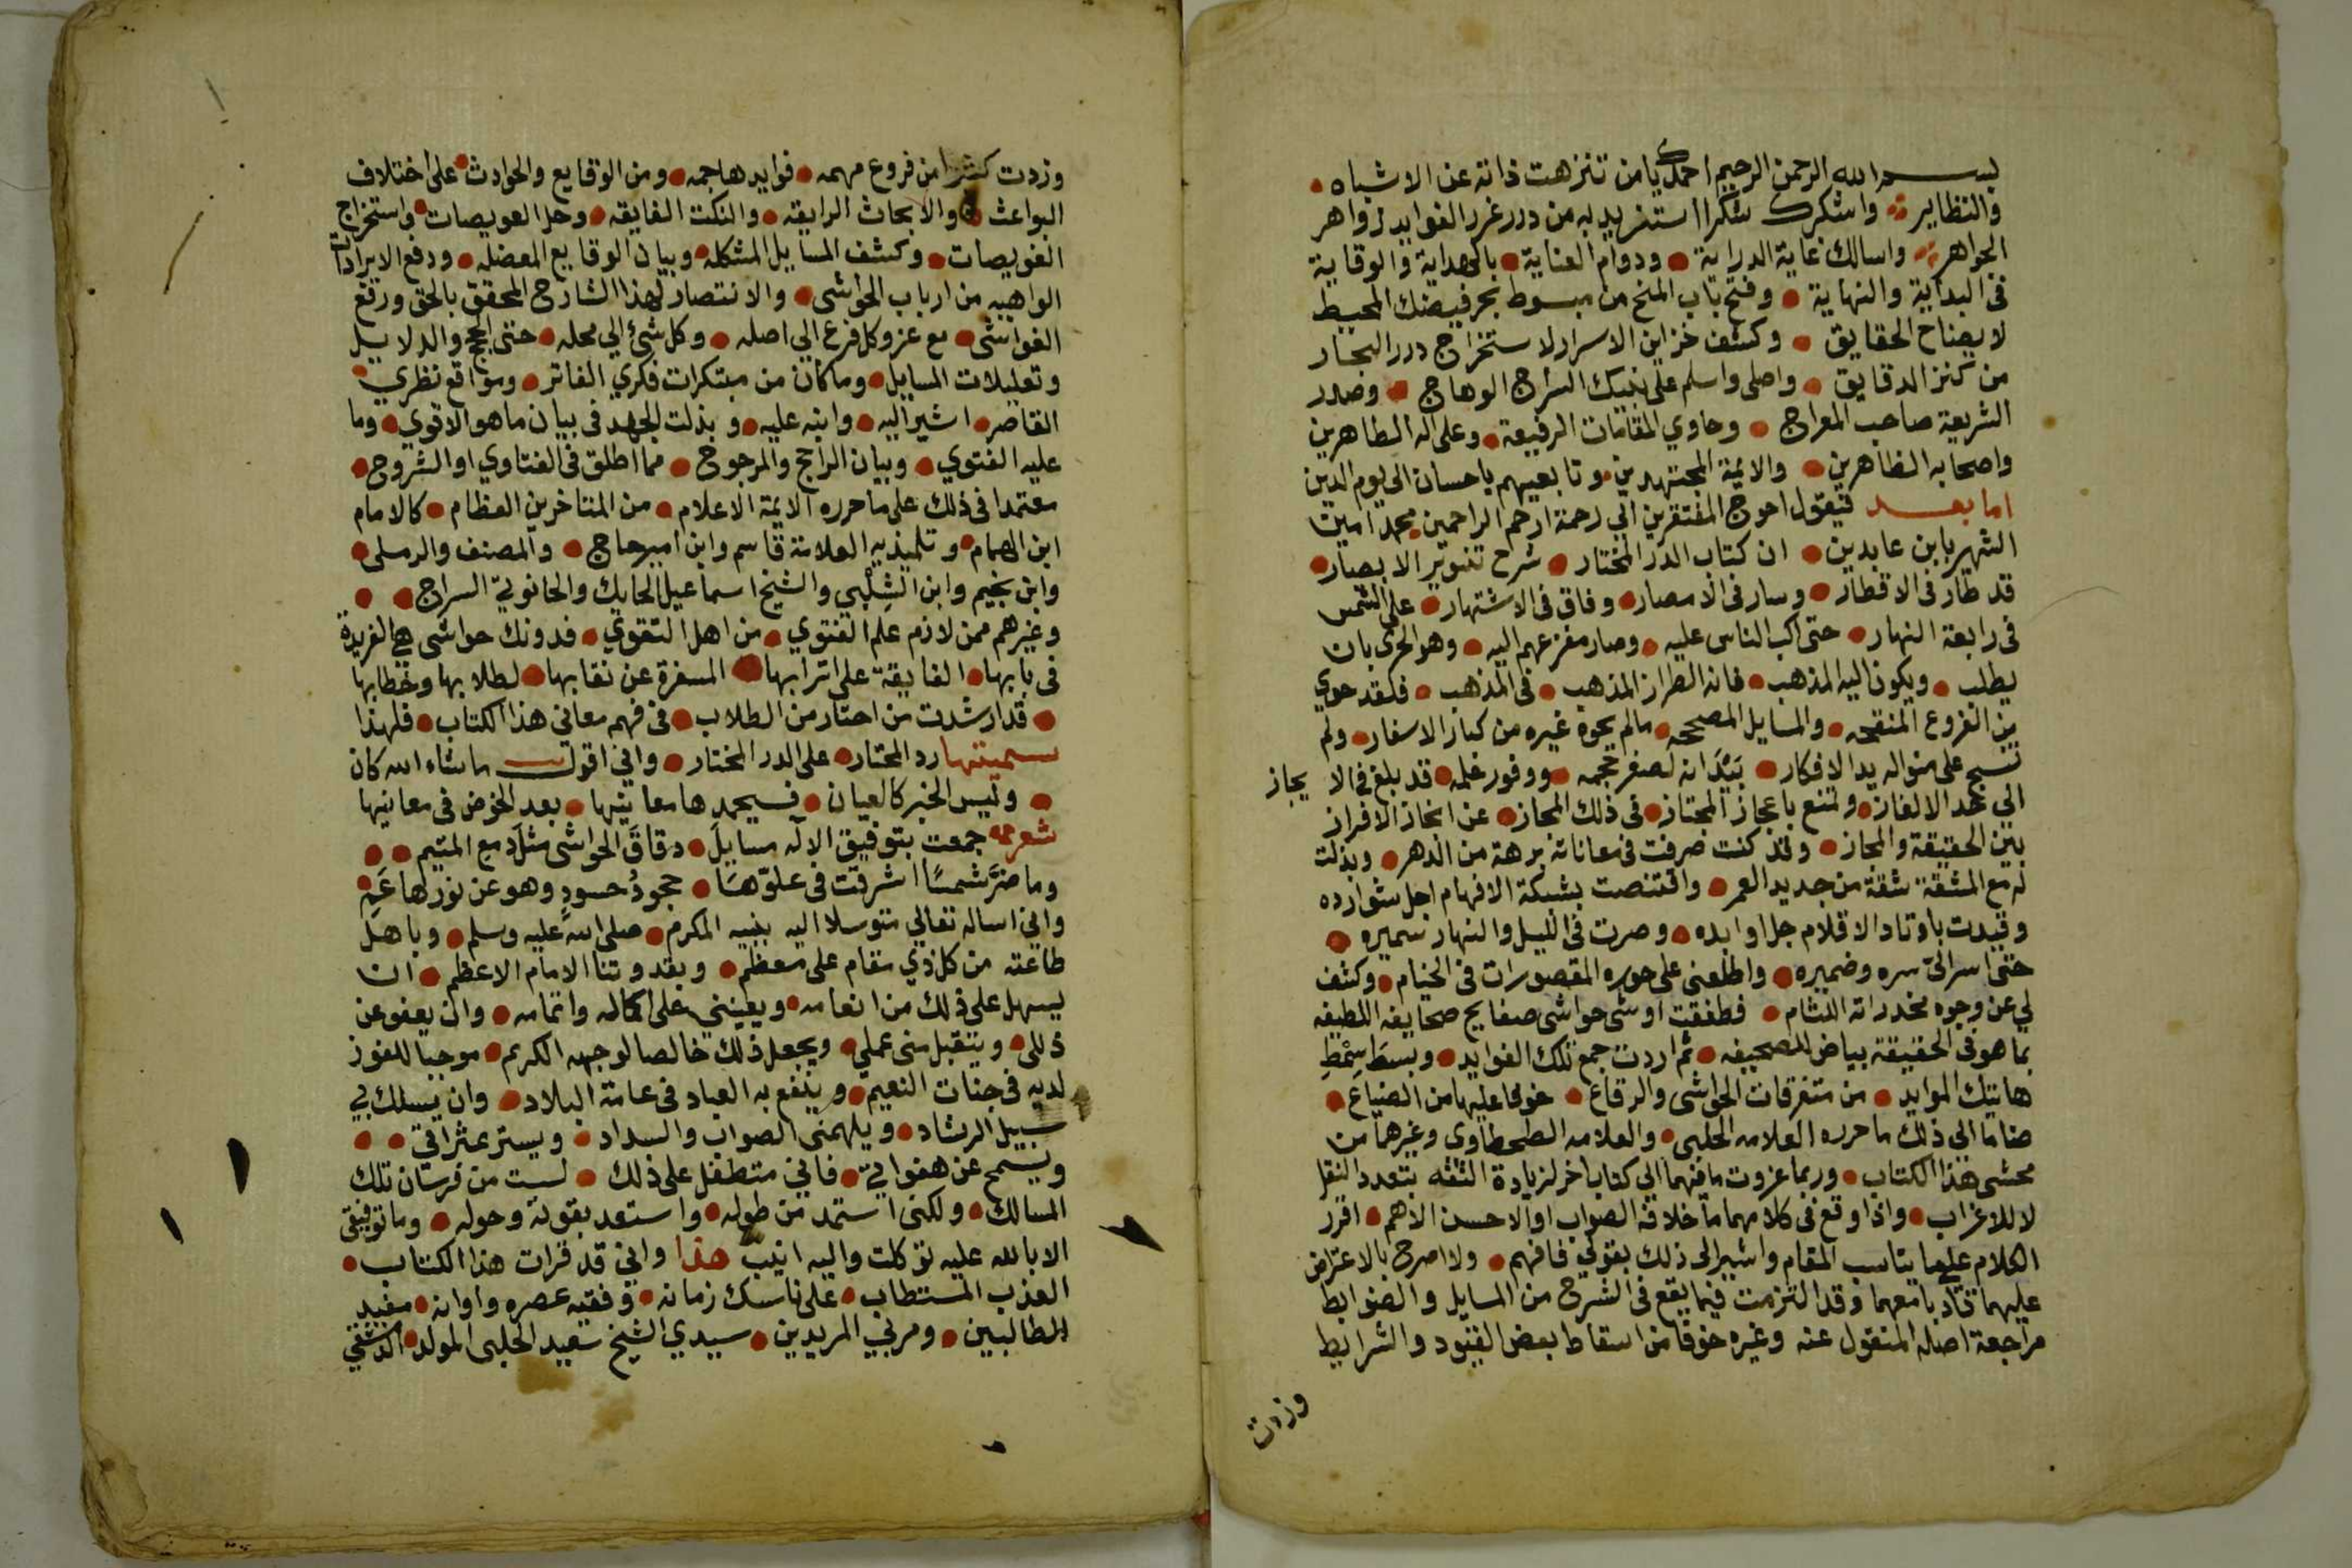 بسم الله الرحمن الرحيم احمدك يا من تنزهت ذاته عن الاشباه
والنظاير واشكرك شكرا استزيد به من درر غرر الفوايد زواهر
الجواهر واسالك غاية الدراية ودوام العناية بالهداية والوقاية
في البداية والنهاية وفتح باب المنح من مبسوط بحر فيضك المحيط
لايضاح الحقايق وكشف خزاين الاسرار لاستخراج درر البحار
من كنز الدقايق واصلي واسلم على نبيك السراج الوهاج وصدر
الشريعة صاحب المعراج وحاوي المقامات الرفيعة وعلى اله الطاهرين
واصحابه الظاهرين والايمة المجتهدين وتابعيهم باحسان الى يوم الدين
اما بعد فيقول احوج المفتقرين الي رحمة ارحم الراحمين محمد امين
الشهير بابن عابدين ان كتاب الدر المختار شرح تنوير الابصار
قد طار في الاقطار وسار في الامصار وفاق في الاشتهار على الشمس
في رابعة النهار حتى اكب الناس عليه وصار مفزعهم اليه وهو الحري بان
يطلب ويكون اليه المذهب فانه الطراز المذهب في المذهب فلقد حوي
من الفروع المنقحه والمسايل المصححه مالم يحوه غيره من كبار الاسفار ولم
تنسج على منواله يد الافكار بَيْدَ انه لصغر حجمه ووفور علمه قد بلغ في الا يجاز
الي حد الالغاز وتمنع باعجاز المجتاز في ذلك المجاز عن انجاز الافراز
بين الحقيقة والمجاز وقد كنت صرفت في معاناته برهة من الدهر وبذلت
له مع المشقة شقة من جديد العمر واقتنصت بشبكة الافهام اجل شوارده
وقيدت باوتاد الاقلام جل اوابده وصرت في الليل والنهار سميره
حتى اسر اليّ سره وضميره واطلعني على حوره المقصورات في الخيام وكشف
لي عن وجوه مخدراته اللثام فطفقت اوشى حواشى صفايح صحايفه اللطيفه
بما هو في الحقيقة بياض للصحيفه ثم اردت جمع تلك الفوايد وبسط سِمْطِ
هاتيك الموايد من متفرقات الحواشى والرقاع خوفا عليها من الضياع
ضاما الي ذلك ما حرره العلامه الحلبي والعلامه الطحطاوي وغيرهما من
محشى هذا الكتاب وربما عزوت ما فيهما الي كتاب اخر لزيادة الثقه بتعدد النقل
لا للاغراب واذا وقع في كلامهما ما خلافه الصواب او الاحسن الاهم اقرر
الكلام على ما يناسب المقام واشير الى ذلك بقولي فافهم ولا اصرح بالاعتراض
عليهما تادبا معهما وقد التزمت فيما يقع في الشرح من المسايل والضوابط
مراجعة اصله المنقول عنه وغيره خوفا من اسقاط بعض القيود والشرايط
وزدت
وزدت كثيرا من فروع مهمه فوايدها جمه ومن الوقايع والحوادث على اختلاف
البواعث والابحاث الرايقه والنكت الفايقه وحل العويصات واستخراج
الغويصات وكشف المسايل المشكله وبيان الوقايع المعضله ودفع الايرادات
الواهيه من ارباب الحواشى والانتصار لهذا الشارح المحقق بالحق ورفع
الغواشى مع عزو كل فرع الي اصله وكل شئ الي محله حتى الحجج والدلايل
وتعليلات المسايل وما كان من مبتكرات فكري الفاتر ومواقع نظري
القاصر اشير اليه وانبه عليه وبذلت الجهد في بيان ما هو الاقوي وما
عليه الفتوي وبيان الراجح والمرجوح مما اطلق في الفتاوي او الشروح
معتمدا في ذلك على ما حرره الايمة الاعلام من المتاخرين العظام كالامام
ابن الهمام وتلميذيه العلامة قاسم وابن اميرحاج والمصنف والرملي
وابن نجيم وابن الشِلْبي والشيخ اسماعيل الحايك والحانوتي السراج
وغيرهم ممن لازم علم الفتوي من اهل التقوي فدونك حواشى هي الفريدة
في بابها الفايقة على اترابها المسفرة عن نقابها لطلابها وخطابها
قد ارشدت من احتار من الطلاب في فهم معاني هذا الكتاب فلهذا
سميتها رد المحتار على الدر المختار واني اقول ما شاء الله كان
وليس الخبر كالعيان فسيحمدها معانيها بعد الخوض في معانيها
شعر جمعت بتوفيق الاله مسايلَ دقاقَ الحواشى مثل دمع المتيم
وما ضرَّ شمسًا اشرقت في علوّها جحودُ حسودٍ وهو عن نورها عَمِ
واني اساله تعالي متوسلا اليه بنبيه المكرم صلى الله عليه وسلم وباهل
طاعته من كل ذي مقام على معظم وبقدوتنا الامام الاعظم ان
يسهل على ذلك من انعامه ويعينني على اكماله واتمامه وان يعفو عن
ذللي ويتقبل مني عملي ويجعل ذلك خالصا لوجهه الكريم موجبا للفوز
لديه في جنات النعيم وينفع به العباد في عامة البلاد وان يسلك بي
سبيل الرشاد ويلهمني الصواب والسداد ويستر عثراتي
ويسمح عن هفواتي فاني متطفل على ذلك لست من فرسان تلك
المسالك ولكني استمد من طوله واستعد بقوته وحوله وما توفيقي
الا بالله عليه توكلت واليه انيب هذا واني قد قرات هذا الكتاب
العذب المستطاب على ناسك زمانه وفقيه عصره واوانه مفيد
الطالبين ومربي المريدين سيدي الشيخ سعيد الحلبي المولد الدمشقي